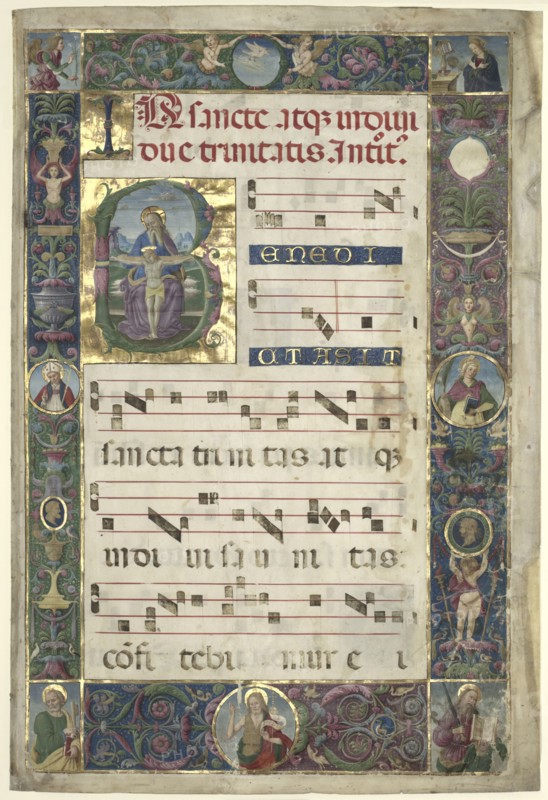 IN sancte atqꝫ indiui
due trinitatis. Introit.
B
ENEDI
CTA SIT
sancta trini tas at qꝫ
indi ui sa uni tas:
cōfi tebi mur e i